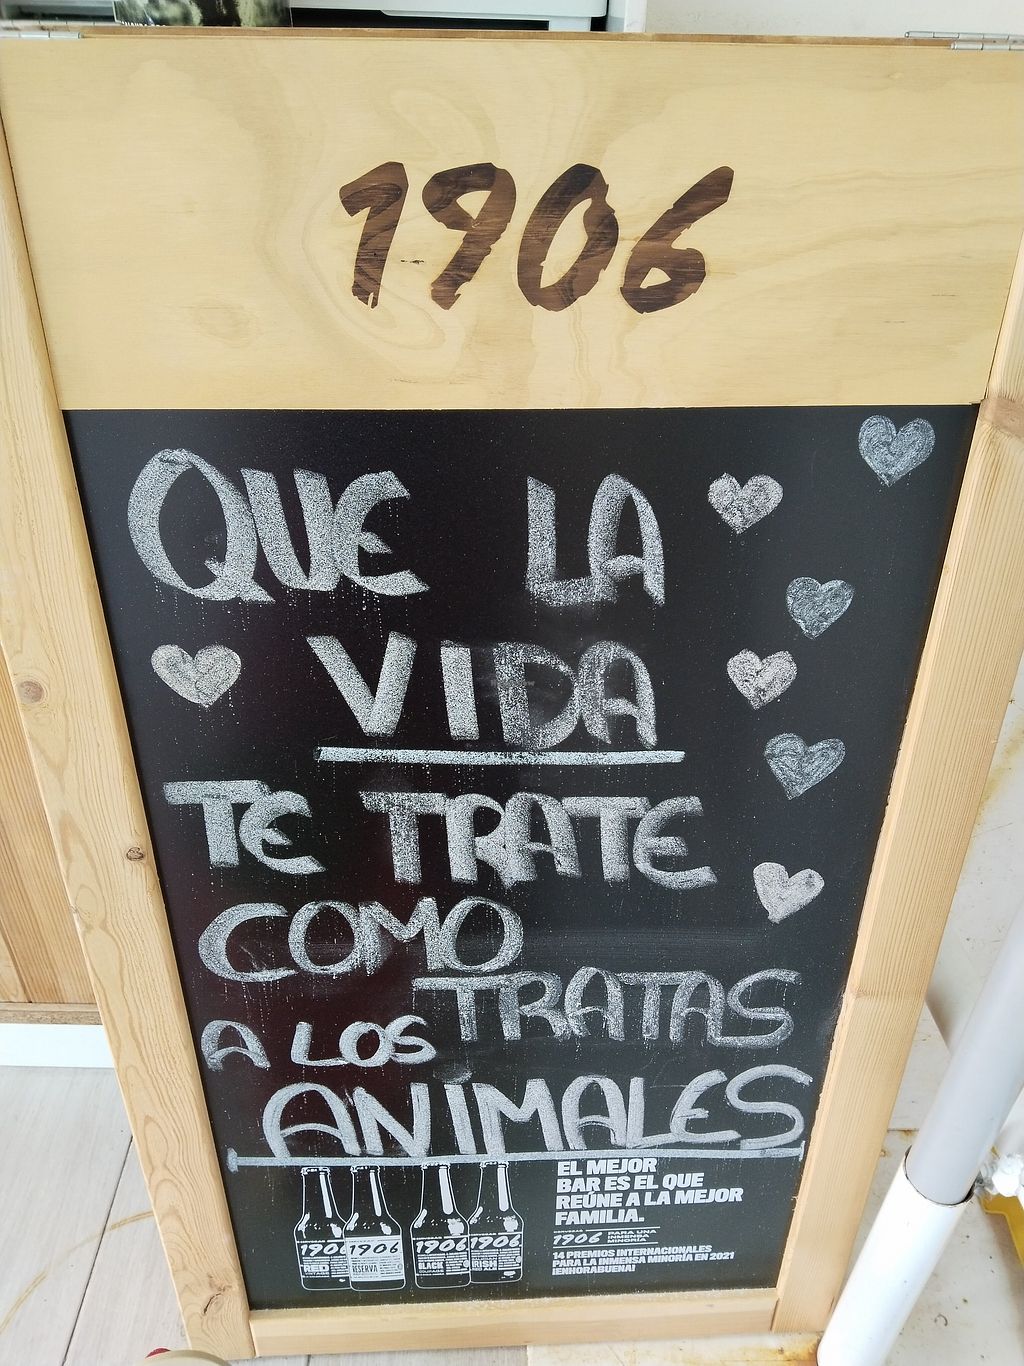 1906
QUE LA
VIDA
TE TRATE
COMO
TRATAS
A LOS
ANIMALES
EL MEJOR
BAR ES EL QUE
REÚNE A LA MEJOR
FAMILIA.
CERVEZAS
1906
PARA UNA
INMENSA
MINORÍA
14 PREMIOS INTERNACIONALES
PARA LA INMENSA MINORÍA EN 2021
¡ENHORABUENA!
1906
RED
1906
RESERVA
1906
BLACK
1906
IRISH